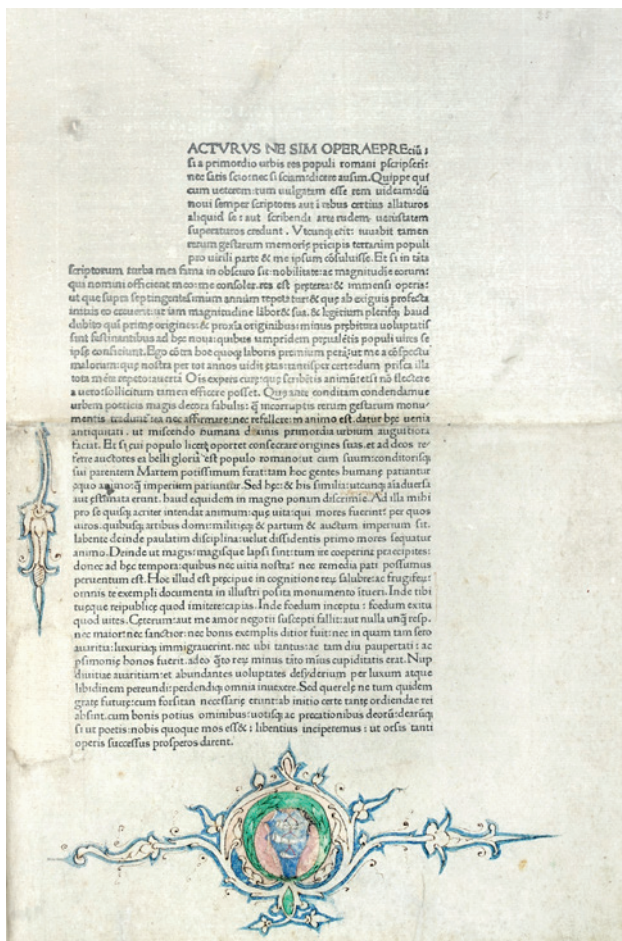 ACTVRVS NE SIM OPERAEPREciũ :
si a primordio urbis res populi romani pscripserĩ:
nec satis scio: nec si sciam: dicere ausim. Quippe qui
cum ueterem: tum uulgatam esse rem uideam: dũ
noui semper scriptores aut ĩ rebus certius allaturos
aliquid se : aut scribendi arte rudem uetustatem
superaturos credunt . Vtcunq; erit: iuuabit tamen
rerum gestarum memorię pricipis terrarum populi
pro uirili parte & me ipsum cõsuluisse. Et si in tãta
scriptorum turba mea fama in obscuro sit: nobilitate: ac magnitudĩe eorum:
qui nomini officient meo: me consoler. res est pręterea: & immensi operis:
ut que supra septingentesimum annum repetatur: & quę ab exiguis profecta
initiis eo creuerit: ut iam magnitudine laboret sua. & legẽtium plerisq; haud
dubito quĩ primę origines: & proxĩa originibus: minus prębitura uoluptatis
sint festinantibus ad hęc noua: quibus iampridem pręualẽtis populi uires se
ipsę conficiunt. Ego cõtra hoc quoq; laboris premium petã: ut me a cõspectu
malorum: quę nostra per tot annos uidit ętas: tantisper certe: dum prisca illa
tota mẽte repeto: auertã Oĩs expers curę: quę scribẽtis animũ: etsi nõ flectere
a uero: sollicitum tamen efficere posset. Quę ante conditam condendamue
urbem poeticis magis decora fabulis: q̃ incorruptis rerum gestarum monu-
mentis tradunt: ea nec affirmare: nec refellere in animo est. datur hęc uenia
antiquitati . ut miscendo humana diuinis primordia urbium augustiora
faciat. Et si cui populo licere oportet consecrare origines suas. et ad deos re-
ferre auctores ea belli gloria est populo romano: ut cum suum: conditorisq;
sui parentem Martem potissimum ferat: tam hoc gentes humanę patiantur
ęquo animo: q̃ imperium patiuntur. Sed hęc: & his similia: utcunq; aĩaduersa
aut ęstimata erunt. haud equidem in magno ponam discrimĩe. Ad illa mihi
pro se quisq; acriter intendat animum: quę uita: qui mores fuerint: per quos
uiros. quibusq; artibus domi: militięq; & partum & auctum imperium sit.
labente deinde paulatim disciplina: uelut dissidentis primo mores sequatur
animo. Deinde ut magis: magisque lapsi sint: tum ire coeperint pręcipites:
donec ad hęc tempora: quibus nec uitia nostra: nec remedia pati possumus
peruentum est. Hoc illud est pręcipue in cognitione reꝝ salubre: ac frugifeꝝ:
omnis te exempli documenta in illustri posita monumento ĩtueri. Inde tibi
tuęque reipublicę quod imitere: capias. Inde foedum inceptu : foedum exitu
quod uites. Ceterum: aut me amor negotii suscepti fallit: aut nulla unq̃ resp.
nec maior: nec sanctior: nec bonis exemplis ditior fuit: nec in quam tam sero
auaritia: luxuriaq; immigrauerint. nec ubi tantus: ac tam diu paupertati : ac
psimonię honos fuerit. adeo q̃to reꝝ minus tãto mĩus cupiditatis erat. Nup
diuitiae auaritiam: et abundantes uoluptates desyderium per luxum atque
libidinem pereundi: perdendiq; omnia inuexere. Sed querelę ne tum quidem
gratę futurę: cum forsitan necessarię erunt: ab initio certe tantę ordiendae rei
absint. cum bonis potius ominibus: uotisq; ac precationibus deorũ: dearũq;
si ut poetis: nobis quoque mos esset : libentius inciperemus : ut orsis tanti
operis successus prosperos darent.